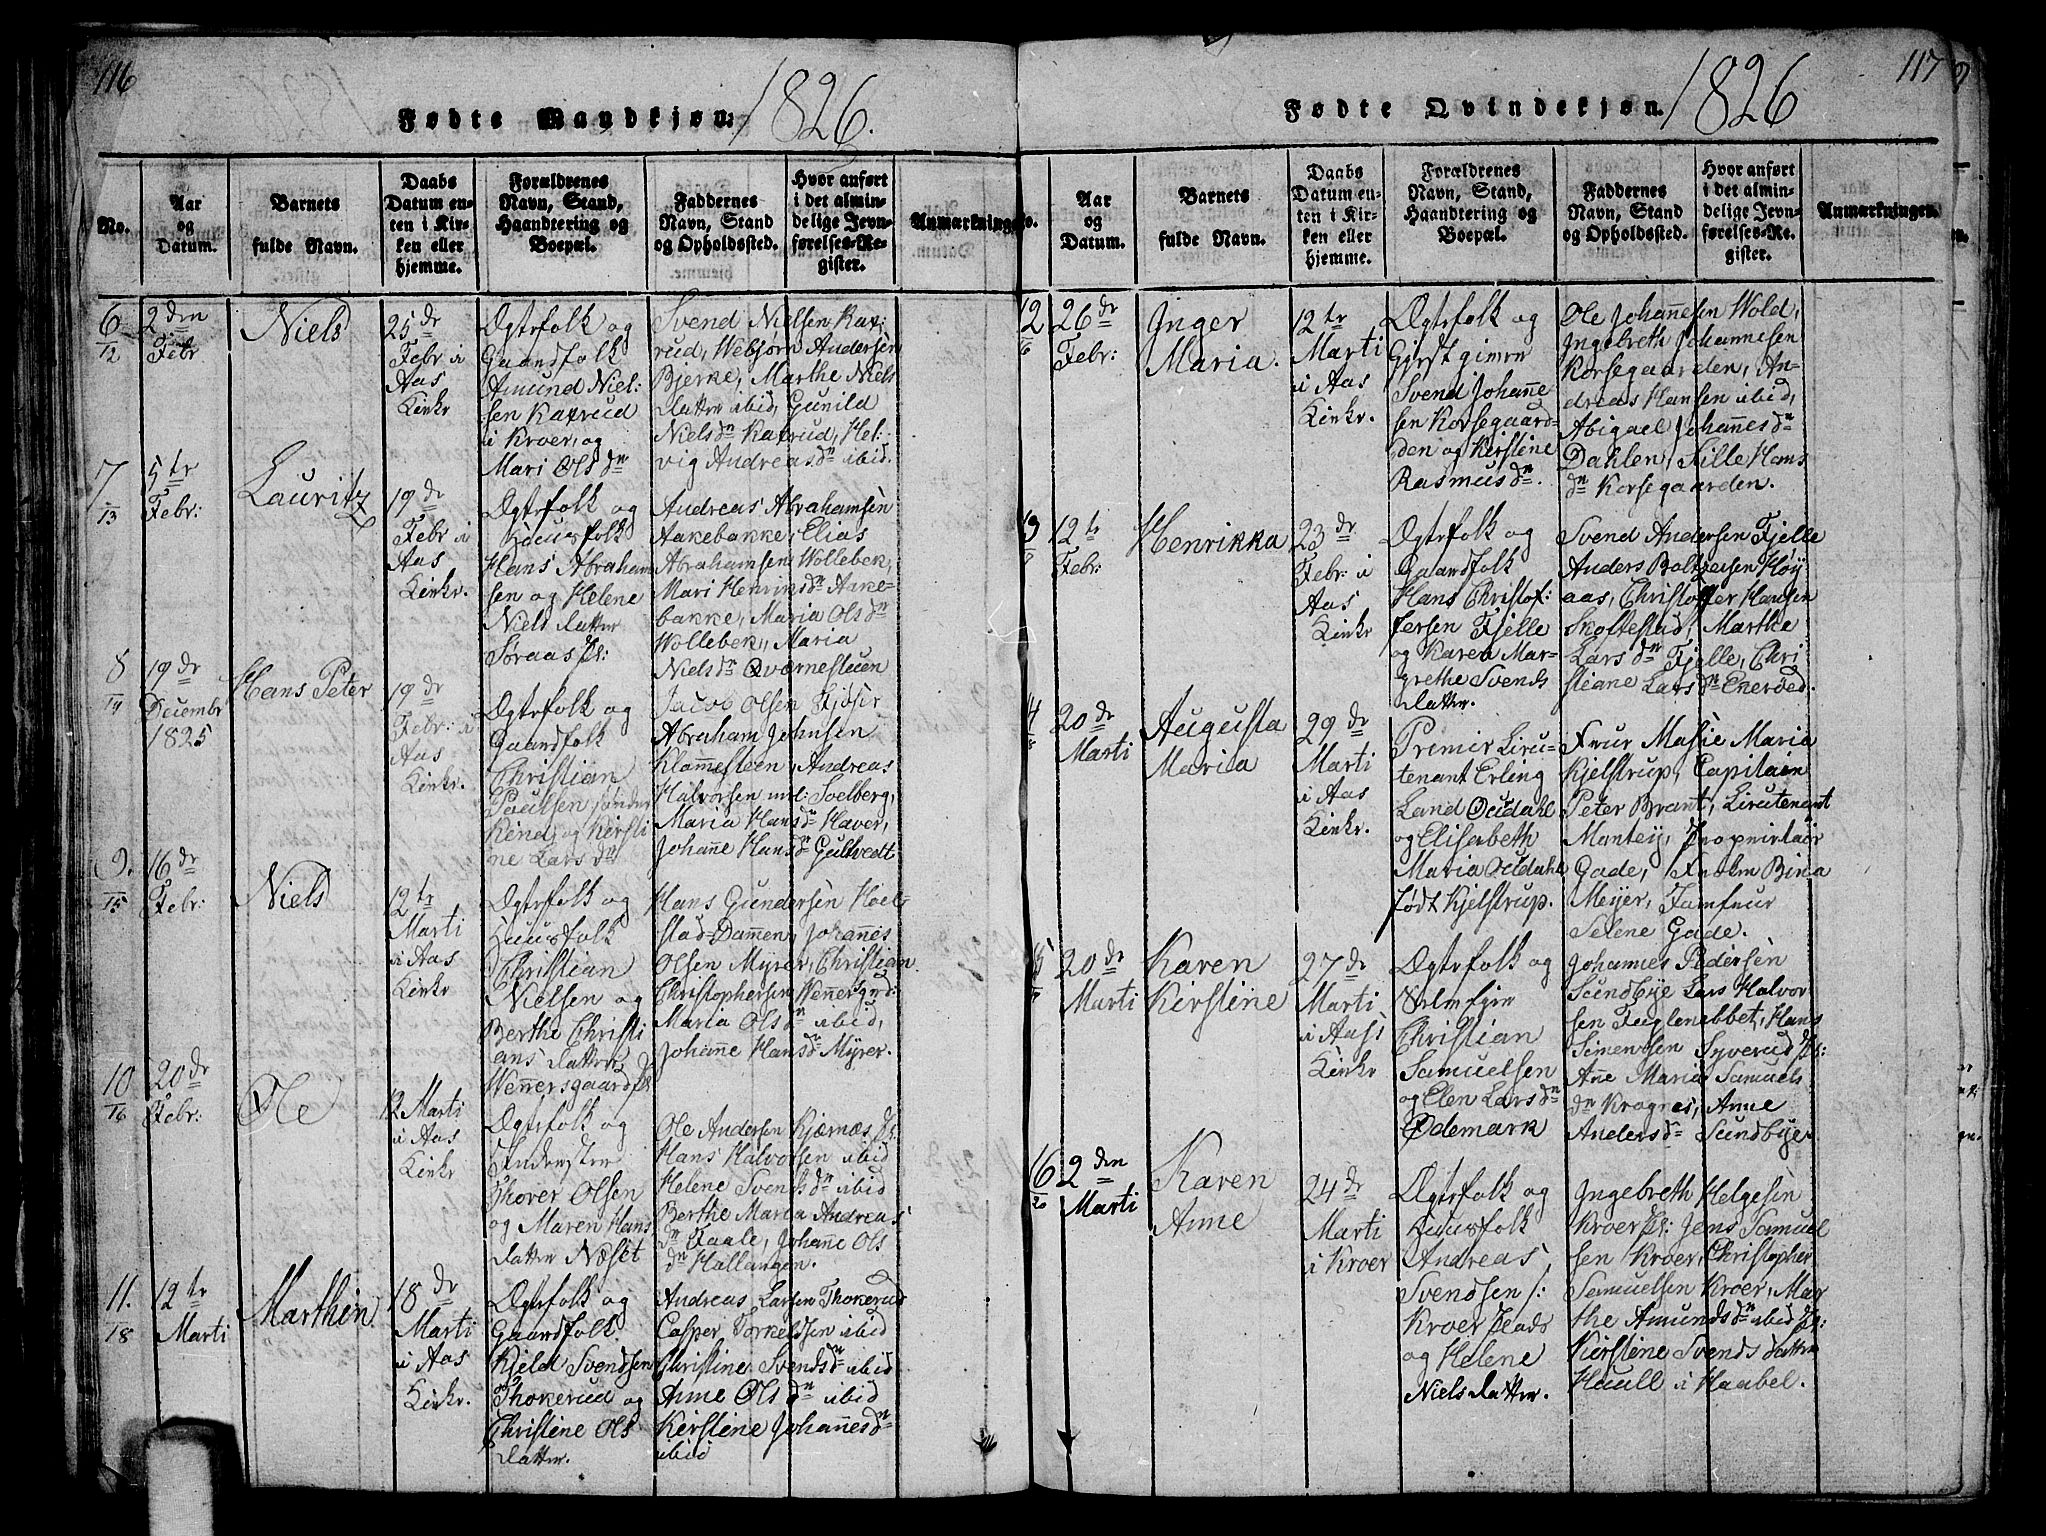 116
Fødte Mandkjøn. 1826.
No.
Aar
og
Datum.
Barnets
fulde Navn.
Daabs
Datum en-
ten i Kir-
ken eller
hjemme.
Forældrenes
Navn, Stand,
Haandtering og
Boepæl.
Faddernes
Navn, Stand
og Opholdssted.
Hvor anført
i det almin-
delige Jevn-
førelses-Re-
gister.
Anmærkninger
6
12
2den
Febr
Niels
25de
Febr i
Aas
Kirke
Ægtefolk og
Gaardfolk
Amund Niel:
sen Kaxrud
i Kroer, og
Mari Olsdn
Svend Nielsen Kax:
rud, Webjørn Andersen
Bjerke, Marthe Niels
datter ibid, Gunild
Nielsdn Kaxrud, Hel:
vig Andreasdn ibid.
7
13
5te
Febr:
Lauritz
19de
Febr i
Aas
Kirke.
Ægtefolk og
Huusfolk
Hans Abraham
sen og Helene
Niels datter
Søraas Pl:
Andreas Abrahamsen
Aakebakke, Elias
Abrahamsen Wollebek,
Mari Henriksdn Aake-
bakke, Maria Olsdn
Wollebek, Maria
Nielsdn Qværnestuen
8
14
19de
Decembr
1825
Hans Peter
19de
Febr: i
Aas
Kirke.
Ægtefolk og
Gaardfolk
Christian
Paulsen Sønder
Kinn, og Kirsti
ne Larsdn
Jacob Olsen Fjøser
Abraham Johnsen
Klommesteen, Andreas
Halvorsen Solberg,
Maria Hansdn Haver,
Johañe Hansdn Gultvedt
9.
15
16de
Febr:
Niels
12te
Marti
i Aas
Kirke
Ægtefolk og
Huusfolk
Christian
Nielsen og
Berthe Christi
ans datter
Weñersgaard Pl
Hans Gundersen Hoel-
stad-Dammen, Johañes
Olsen Myrer, Christian
Christophersen Weñersgrd:
Maria Olsdn ibid,
Johañe Hansdn Myrer.
10
16
20de
Febr:
Ole
12 Marti
i Aas
Kirke
Ægtefolk og
Inderster
Thorer Olsen
og Maren Hans
datter Næset
Ole Andersen Kjærnæs Pl:
Hans Halvorsen ibid
Helene Svendsdn ibid
Berthe Maria Andreas
dn Faale, Johañe Ols
dn Hallangen.
11.
18
12te
Marti
Marthin
18de
Marti
i Aas
Kirke.
Ægtefolk og
Gaardfolk
Kield Svendsen
Thokerud og
Christine Ols
datter.
Andreas Larsen Thokerud
Casper Torkeldsen ibid
Christine Svendsdn ibid
Anne Olsdn ibid
Kirstine Johañesdn
ibid
117
Fødte Qvindekjøn. 1826
Aar
og
Datum.
Barnets
fulde Navn.
Daabs
Datum en-
ten i Kir-
ken eller
hjemme.
Forældrenes
Navn, Stand,
Haandtering og
Boepæl.
Faddernes
Navn, Stand
og Opholdssted.
Hvor anført
i det almin-
delige Jevn-
førelses-Re-
gister.
Anmærkninger.
12
6
26de
Febr:
Inger
Maria.
12te
Marti
i Aas
Kirke.
Ægtefolk og
Gjestgiver
Svend Johañe
sen Korsegaar-
den og Kirstine
Rasmusdn.
Ole Johañesen Wold,
Ingebreth Johannesen
Korsegaarden, An-
dreas Hansen ibid,
Abigael Johañesdn
Dahlen, Sille Hans
dn Korsegaarden.
13
12te
Febr:
Henrikka
23de
Febr: i
Aas
Kirke
Ægtefolk og
Gaardfolk
Hans Christof:
fersen Fjelle
og Karen Mar-
grethe Svends
datter.
Svend Andersen Fjelle
Anders Baltzersen Høy
aas, Christoffer Hansen
Skoltestad, Marthe
Larsdn Fjelle, Chri
stiane Larsdn Enerøed.
14
20de
Marti
Augusta
Maria
29de
Marti
i Aas
Kirke.
Premier Lieu-
tenant Erling
Land Ouldahl
og Elisabeth
Maria Ouldahl
født Kjelstrup.
Frue Masie Maria
Kjelstrup, Capitain
Peter Brant, Lieutenant
Mantey, Proprietair
Gade, Frøken Bina
Meyer, Jomfrue
Selene Gade.
15
20de
Marti
Karen
Kirstine
27de
Marti
i Aas
Kirke
Ægtefolk og
Selveier
Christian
Samuelsen
og Elen Larsdn
Ødemark
Johannes Pedersen
Sundbye Lars Halvor
sen Fuglenebbet, Hans
Simensen Syverud Pl:
Añe Maria Samuels
dn Krognes, Anne
Andersdn Sundbye.
16
20
2den
Marti
Karen
Anne
24de
Marti
i Kroer
Ægtefolk og
Huusfolk
Andreas
Svendsen /:
Kroer Plads
og Helene
Niels datter.
Ingebreth Helgesen
Kroer Pl: Jens Samuel
sen Kroer, Christopher
Samuelsen Kroer, Mar
the Amundsdn ibid Pl:
Kirstine Svends datter
Huull i Haabel.